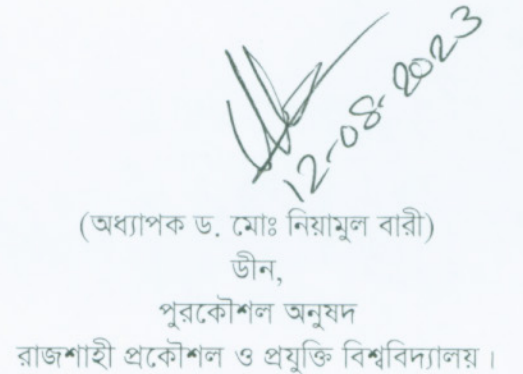 12-08-2023
(অধ্যাপক ড. মোঃ নিয়ামুল বারী)
ডীন,
পুরকৌশল অনুষদ
রাজশাহী প্রকৌশল ও প্রযুক্তি বিশ্ববিদ্যালয়।